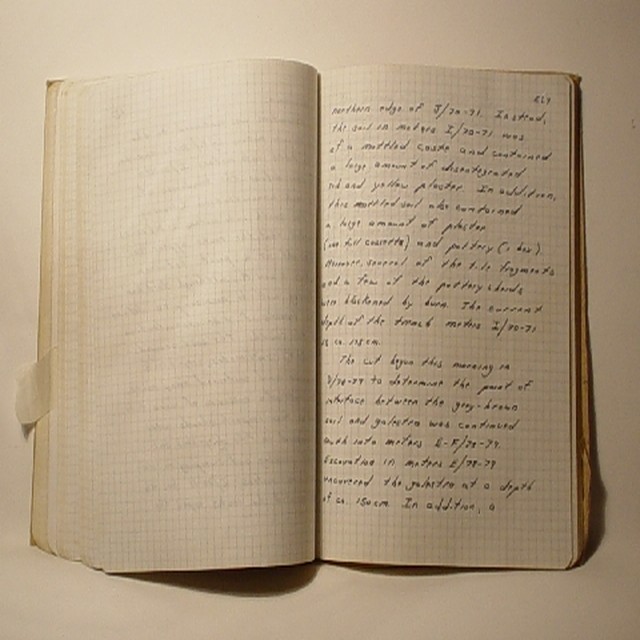 northern edge of J/70-71. Instead,
the soil in meters I/70-71 was
of a mottled caste and contained
a large amount of disentegrated
red and yellow plaster. In addition,
this mottled soil also contained
a large amount of plaster
(one full cassetta) and pottery (1 box).
Moreover, several of the tile fragments
and a few of the pottery sherds
were blackened by burn. The current
depth of the trench meters I/70-71
is ca. 115 cm.
The cut begun this morning in
to determine the point of
interface between the grey-brown
soil and galestra was continued
south into meters E-F/78-79.
Excavation in meters E/78-79
uncovered the galestra at a depth
of ca. 150 cm. In addition, a